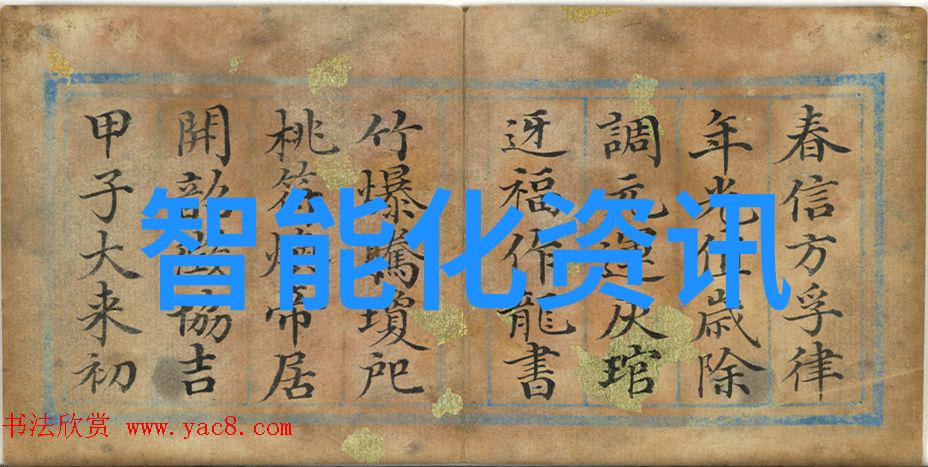 春信方孚律
年光歲除
調元運灰琯
迓福作龍書
竹爆驚瓊
桃符煥帝居
開韶協吉
甲子大来初
智能化资讯
书法欣赏 www.yac8.com